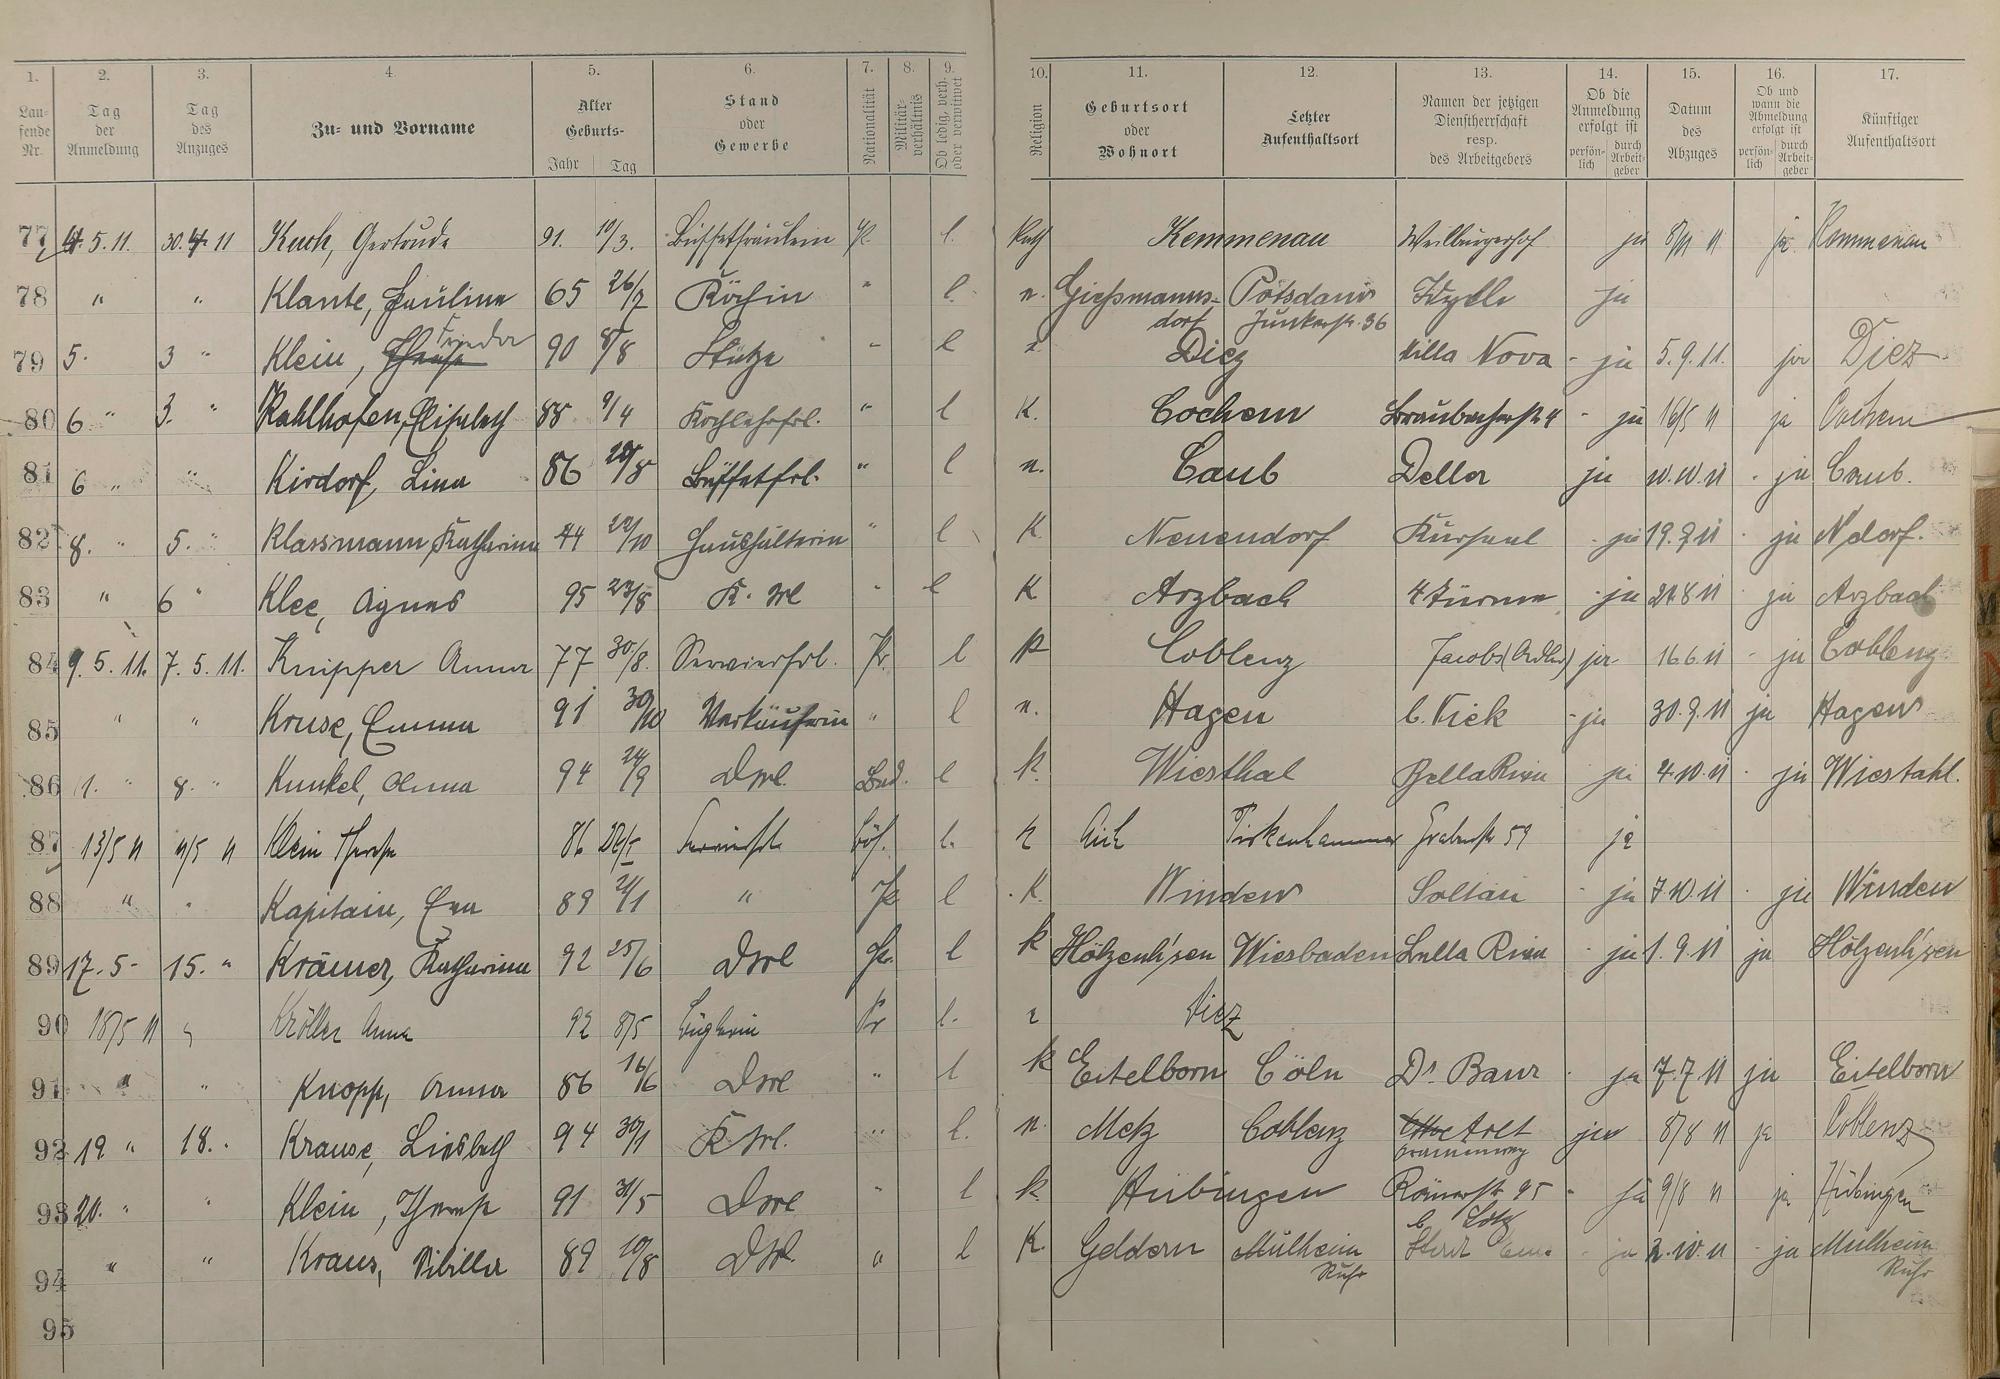 1. 2. 3. 4. 5. 6. 7. 8. 9. 10. 11. 12. 13. 14. 15. 16. 17.
Laufende Nr. Tag der Anmeldung Tag des Anzuges Zu- und Vorname Alter Geburts- Jahr Tag Stand oder Gewerbe Nationalität Militärverhältnis Ob ledig, verh. oder verwitwet Religion Geburtsort oder Wohnort Letzter Aufenthaltsort Namen der jetzigen Dienstherrschaft resp. des Arbeitgebers Ob die Anmeldung erfolgt ist persönlich durch Arbeitgeber Datum des Abzuges Ob und wann die Abmeldung erfolgt ist persönlich durch Arbeitgeber Künftiger Aufenthaltsort
77 4. 5. 11. 30. 4. 11 Gertrude 91. 10/3. Büffetfräulein Pr. l. Kath Kemmenau Weilburgerhof ja 8/11 11 ja Kemmenau
78 " " Klante, Pauline 65 26/7 Köchin " l. n. Giessmannsdorf Potsdam Junkerstr. 36 Idylle ja
79 5. 3 " Klein, Frieda 90 8/8 Stütze " l Diez Villa Nova - ja 5. 9. 11. ja Diez
80 6 " 3. " Kahlhofen, Elisabeth 88 9/4 Kochlehrfrl. " l K. Cochem Braubacherstr 4 - ja 16/5 11 ja Cochem
81 6 " " Kirdorf, Lina 86 20/8 Büffetfrl. " l n. Caub Deller ja 10. 10. 11 - ja Caub.
82 8. " 5. " Klassmann, Katharina 44 22/10 Haushälterin " l K. Neuendorf Kursaal - ja 19. 9. 11 - ja N'dorf.
83 " 6 " Klee, Agnes 95 23/8 K. Ml " l K Arzbach 4 Türme - ja 21. 8 11 - ja Arzbach
84 9. 5. 11. 7. 5. 11. Knipper Anna 77 30/8. Servierfrl. Pr. l K Coblenz Jacobs (Adler) ja - 16 6. 11 - ja Coblenz
85 " " Kruse, Emma 91 30/10 Verkäuferin " l n. Hagen b. Vick - ja 30. 9. 11 ja Hagen
86 11. " 8. " Kunkel, Anna 94 24/9 DMl. Bad. l k. Wiesthal Bella Riva ja 4. 10. 11 - ja Wiestahl.
87 13/5 11 11/5 11 Klein Therese 86 Servierfrl. Böh. l. k Aich Pirkenhammer Grabenstr 59 ja
88 " " Kapitain, Eva 89 21/1 " Pr l K. Winden Soltau - ja 7. 10. 11 - ja Winden
89 17. 5 - 15. " Krämer, Katharina 92 25/6 DMl Pr. l k Hölzenh'sen Wiesbaden Bella Riva - ja 1. 9. 11 ja Hölzenh'sen
90 18/5 11 " Kröller Anna 92 8/5 Büglerin Pr l. Diez
91 " " Knopp, Anna 86 16/6 DMl " l k Eitelborn Cöln Dr. Baur - ja 7. 7. 11 ja Eitelborn
92 19 " 18. " Krause, Lisbeth 94 30/1 K Ml. " l. n. Metz Coblenz Arlt ja 8/8 11 ja Coblenz
93 20. " " Klein, Therese 91 31/5 DMl " l k. Hübingen Römerstr 95 b. Lotz - ja 9/8 11 ja Hübingen
94 " " Kraus, Sibilla 89 10/8 DMl. " l K. Geldern Mülheim Ruhr - ja 2. 10. 11 - ja Mülheim Ruhr
95